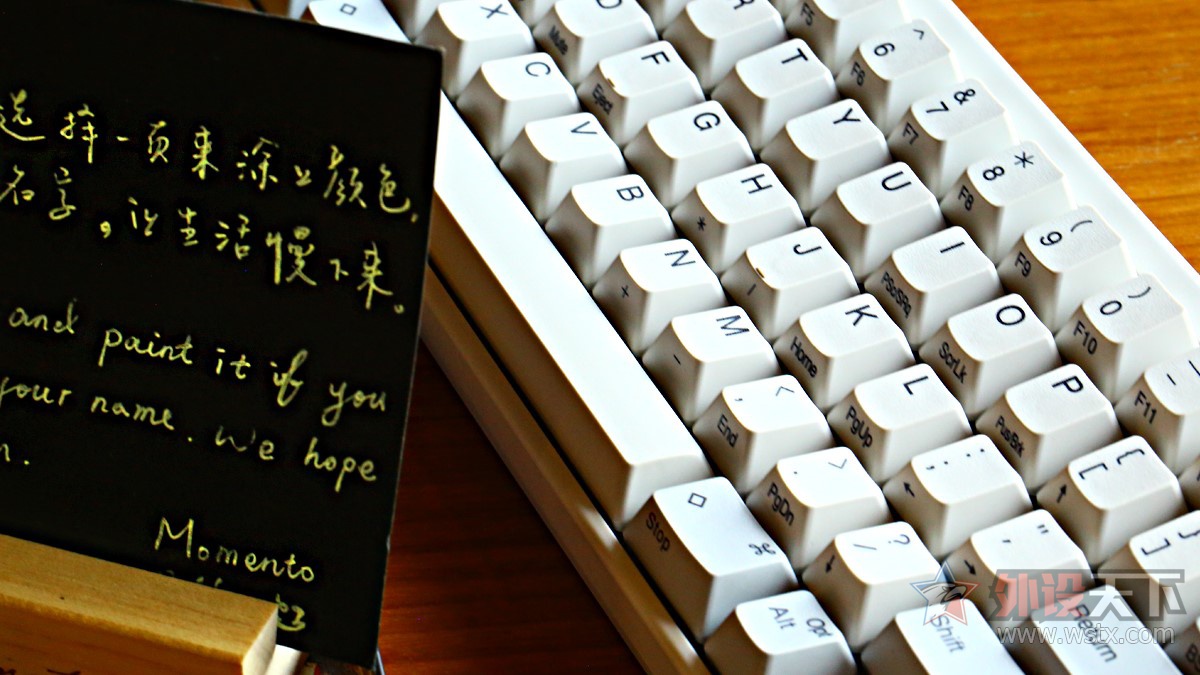 选择一页来涂上颜色,
名字。让生活慢下来。
and paint it if you
your name. We hope
n.
Momento
X
C
V
B
N
+
M
-
<
,
End
>
.
PgDn
◇
⌘
Stop
Alt
Opt
Mute
F
Eject
G
H
*
J
-
K
Home
L
PgUp
:
;
←
?
/
↓
Shift
R
T
Y
U
I
PScSRq
O
ScrLk
P
PusBrk
{
[
↑
"
'
→
Return
}
]
F5
^
6
F6
&
7
F7
*
8
F8
(
9
F9
)
0
F10
F11
外设天下
www.wstx.com